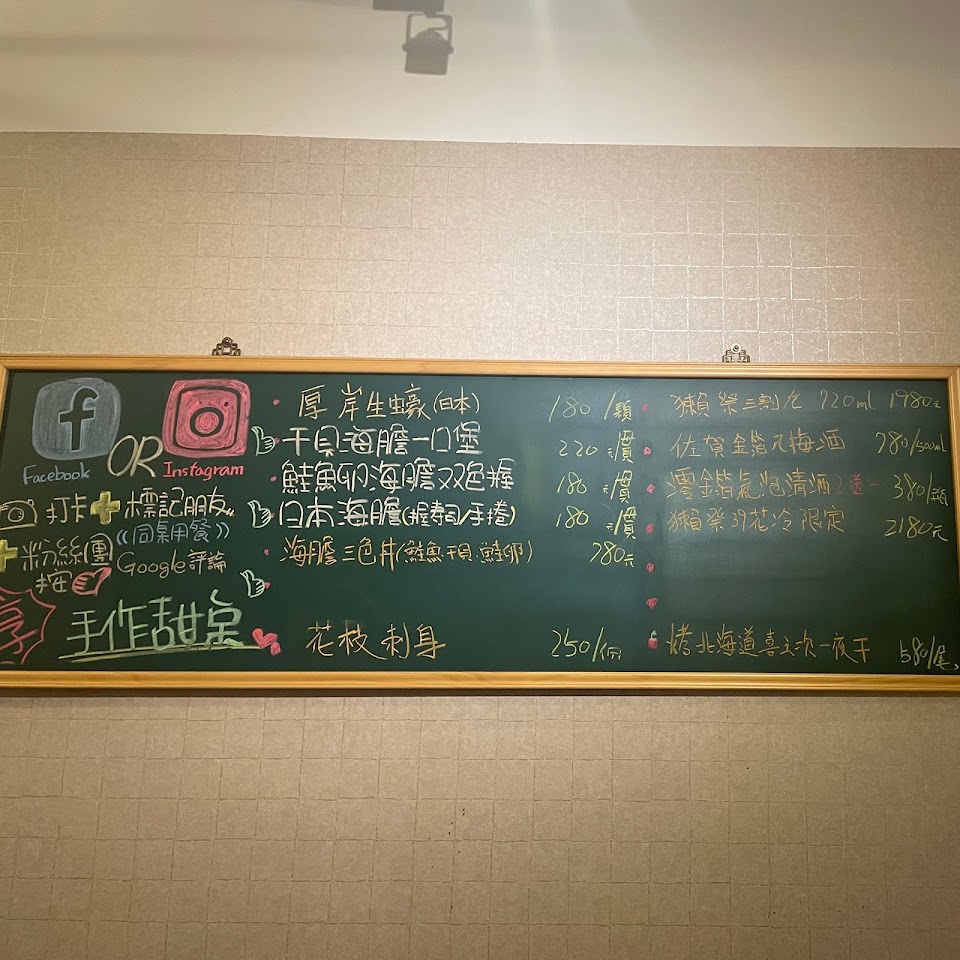 Facebook
OR
Instagram
打卡 + 標記朋友
《同桌用餐》
+ 粉絲團
按
Google評論
享
手作甜點
厚岸生蠔(日本) 180/顆
干貝海膽一口堡 220
鮭魚卵海膽双色握 180
日本海膽(握壽司/手捲) 180
海膽三色丼(鮭魚.干貝.鮭卵) 780元
花枝刺身 250/份
獺祭三割九 720ml 1980元
佐賀金箔梅酒 780/500ml
澪金箔氣泡清酒 2送一 380/瓶
獺祭39花冷限定 2180元
烤北海道喜之次一夜干 580/尾